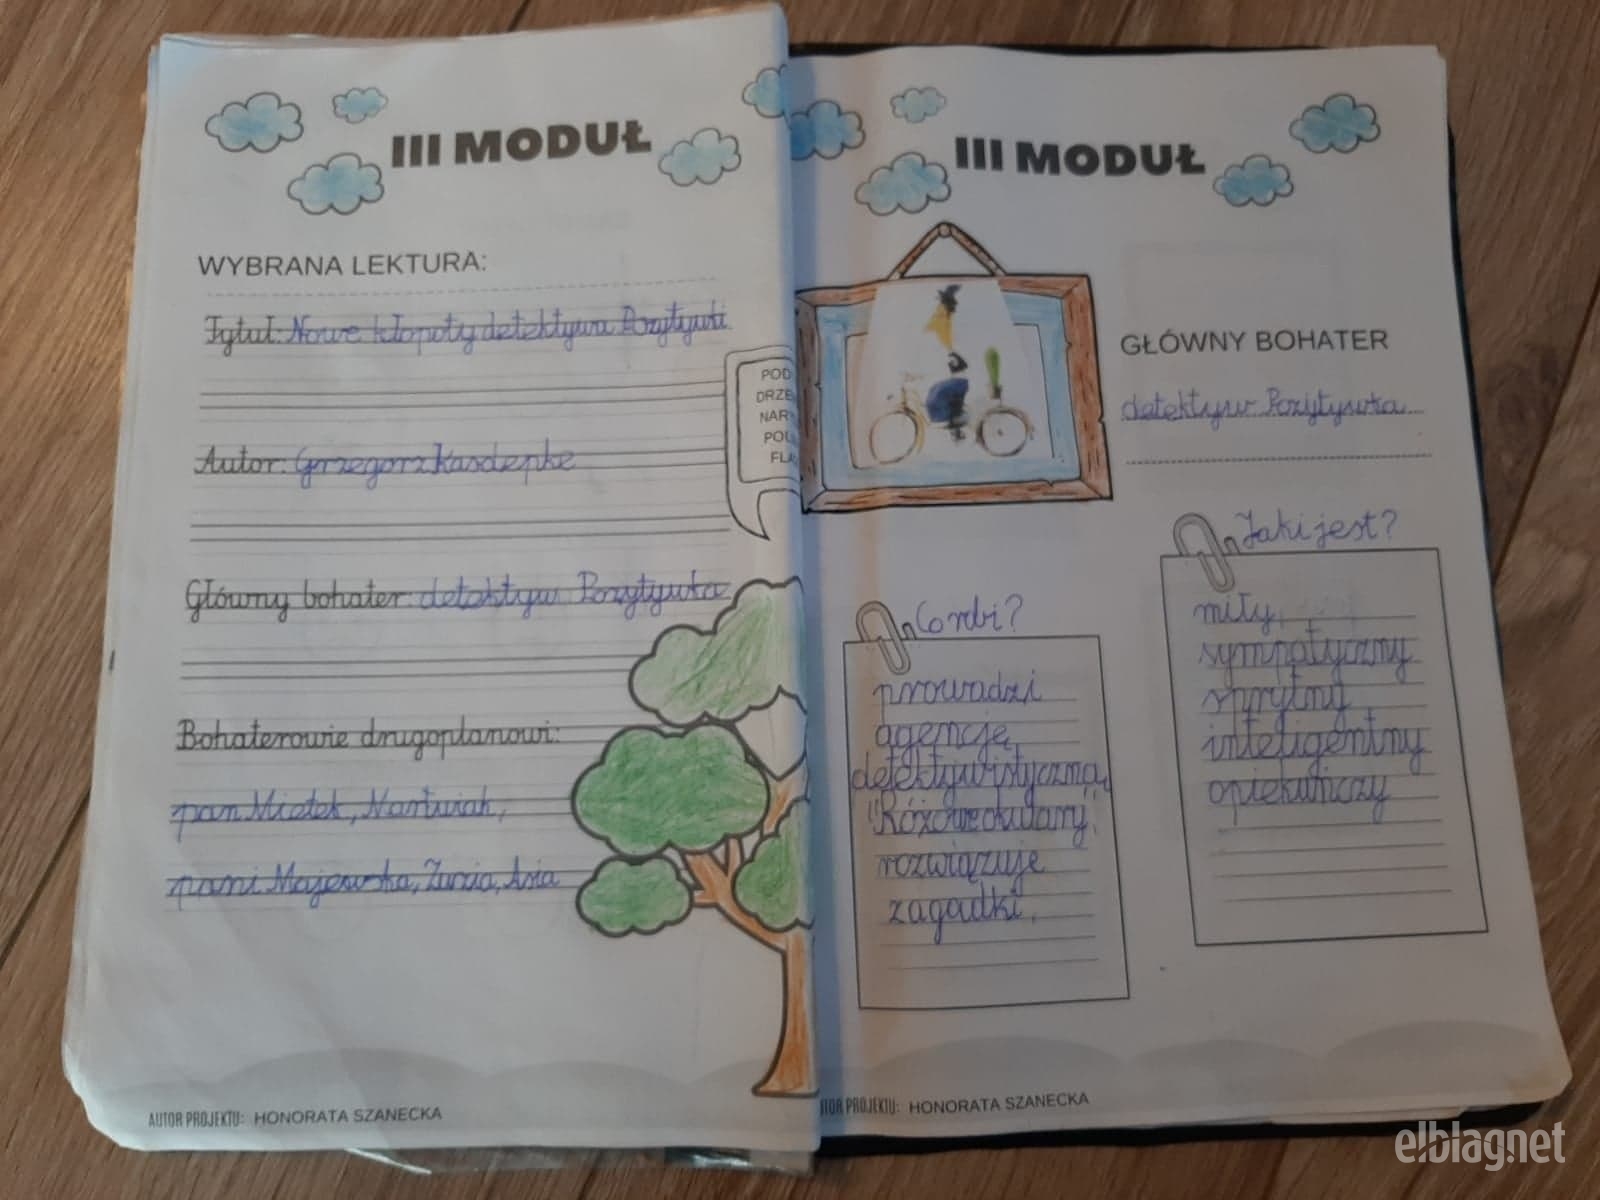 III MODUŁ
WYBRANA LEKTURA:
Tytuł: Nowe kłopoty detektywa Pozytywki
Autor: Grzegorz Kasdepke
Główny bohater: detektyw Pozytywka
Bohaterowie drugoplanowi:
pan Mietek, Martwiak,
pani Majewska, Zuzia, Asia
POD
DRZE
NAR
POL
FLA
AUTOR PROJEKTU: HONORATA SZANECKA
III MODUŁ
GŁÓWNY BOHATER
detektyw Pozytywka
Co robi?
prowadzi
agencję
detektywistyczną
"Różowe okulary",
rozwiązuje
zagadki.
Jaki jest?
miły,
sympatyczny
sprytny
inteligentny
opiekuńczy
PROJEKTU: HONORATA SZANECKA
elblag.net